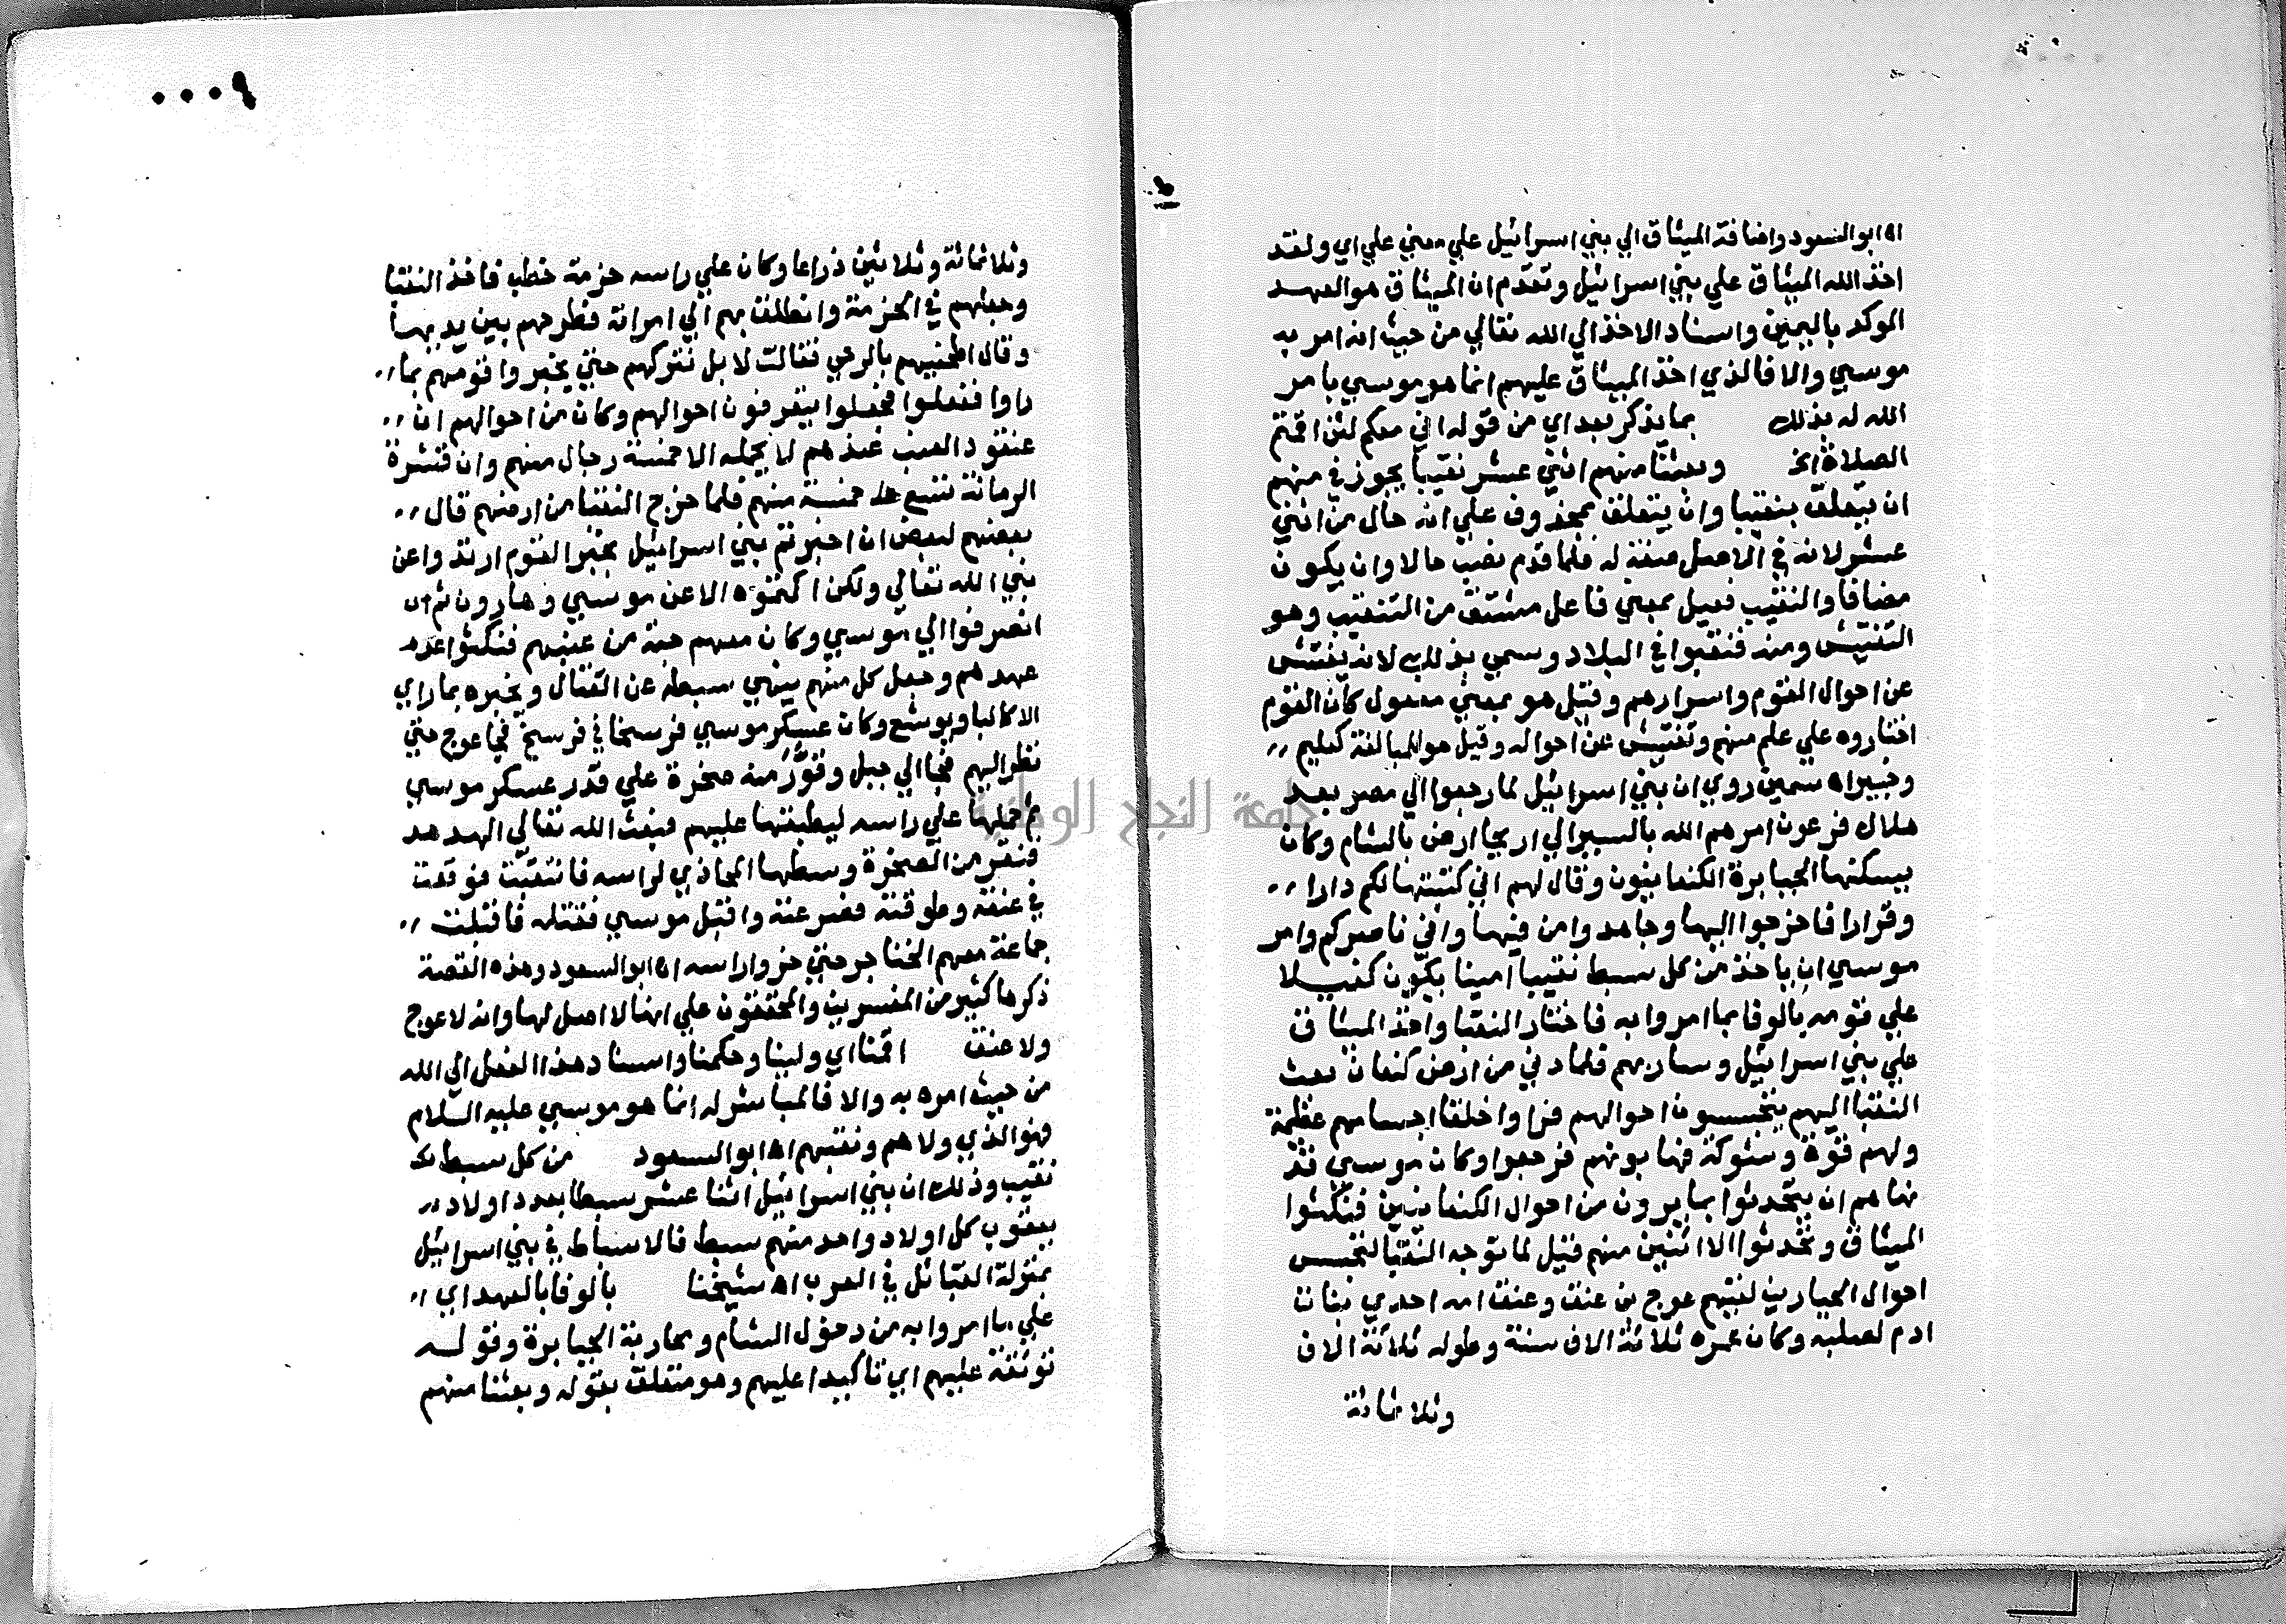 اه ابو السعود واضافة الميثاق الي بني اسرائيل علي معني علي اي ولقد
اخذ الله الميثاق علي بني اسرائيل وتقدم ان الميثاق هو العهد
الموكد باليمين واسناد الاخذ الي الله تعالي من حيث انه امر به
موسي والا فالذي اخذ الميثاق عليهم انما هو موسي بامر
الله له بذلك بما يذكر بعد اي من قوله اني معكم لئن اقمتم
الصلاة الخ وبعثنا منهم اثني عشر نقيبا يجوز في منهم
ان يتعلق بنقيبا وان يتعلق بمحذوف علي انه حال من اثني
عشر لانه في الاصل صفة له فلما قدم نصب حالا وان يكون
مضافا والنقيب فعيل بمعني فاعل مشتق من التنقيب وهو
التفتيش ومنه فنقبوا في البلاد وسمي بذلك لانه يفتش
عن احوال القوم واسرارهم وقيل هو بمعني مفعول كان القوم
اختاروه علي علم منهم وتفتيش عن احواله وقيل هو للمبالغة كعليم
وخبير اه سمين روي ان بني اسرائيل لما رجعوا الي مصر بعد
هلاك فرعون امرهم الله بالسير الي اريحا ارض بالشام وكان
يسكنها الجبابرة الكنعانيون وقال لهم اني كتبتها لكم دارا
وقرارا فاخرجوا اليها وجاهدوا من فيها واني ناصركم وامر
موسي ان ياخذ من كل سبط نقيبا امينا يكون كفيلا
علي قومه بالوفا بما امروا به فاختار النقبا واخذ الميثاق
علي بني اسرائيل وسار بهم فلما دني من ارض كنعان بعث
النقبا اليهم يتجسسون احوالهم فراوا خلقا اجسامهم عظيمة
ولهم قوة وشوكة فهابوهم فرجعوا وكان موسي قد
نهاهم ان يتحدثوا بما يرون من احوال الكنعانيين فنكثوا
الميثاق وتحدثوا الا اثنين منهم قيل لما توجه النقبا لتجسس
احوال الجبارين لقيهم عوج بن عنق وعنق امه احدي بنات
ادم لصلبه وكان عمره ثلاثة الاف سنة وطوله ثلاثة الاف
وثلاثمائة
٠٠٠٩
وثلاثمائة وثلاثين ذراعا وكان علي راسه حزمة حطب فاخذ النقبا
وجعلهم في الحزمة وانطلق بهم الي امراته فطرحهم بين يديها
وقال اطحنيهم بالرحي فقالت لا بل نتركهم حتي يخبروا قومهم بما
راوا ففعلوا فجعلوا يتعرفون احوالهم وكان من احوالهم ان
عنقود العنب عندهم لا يحمله الا خمسة رجال منهم وان قشرة
الرمانة تسع خمسة منهم فلما خرج النقبا من ارضهم قال
بعضهم لبعض ان اخبرتم بني اسرائيل بخبر القوم ارتدوا عن
نبي الله تعالي ولكن اكتموه الا عن موسي وهارون ثم ان
انصرفوا الي موسي وكان معهم حبة من عنبهم فنكثوا
عهدهم وجعل كل منهم ينهي سبطه عن القتال ويخبره بما راي
الا كالبا ويوشع وكان عسكر موسي فرسخا في فرسخ فجا عوج حتي
نظر اليهم فجا الي جبل وقور منه صخرة علي قدر عسكر موسي
ثم حملها علي راسه ليطبقها عليهم فبعث الله تعالي الهدهد
فنقر من الصخرة وسطها المحاذي لراسه فانتقبت فوقعت
في عنقه وطوقته فصرعته واقبل موسي فقتله فاقبلت
جماعة معهم الخناجر حتي حزوا راسه اه ابو السعود وهذه القصة
ذكرها كثير من المفسرين والمحققون علي انها لا اصل لها وانه لا عوج
ولا عنق اقمنا اي ولينا وحكمنا واسناد هذا الفعل الي الله
من حيث امره به والا فالمباشر له انما هو موسي عليه السلام
فهو الذي ولاهم ونقبهم اه ابو السعود من كل سبط
نقيب وذلك ان بني اسرائيل اثنا عشر سبطا بعدد اولاد
يعقوب كل اولاد واحد منهم سبط فالاسباط في بني اسرائيل
بمنزلة القبائل في العرب اه شيخنا بالوفا بالعهد اي
علي ما امروا به من دخول الشام ومحاربة الجبابرة وقوله
توثقة عليهم اي تاكيدا عليهم وهو متعلق بقوله وبعثنا منهم
جامعة النجاح الوطنية